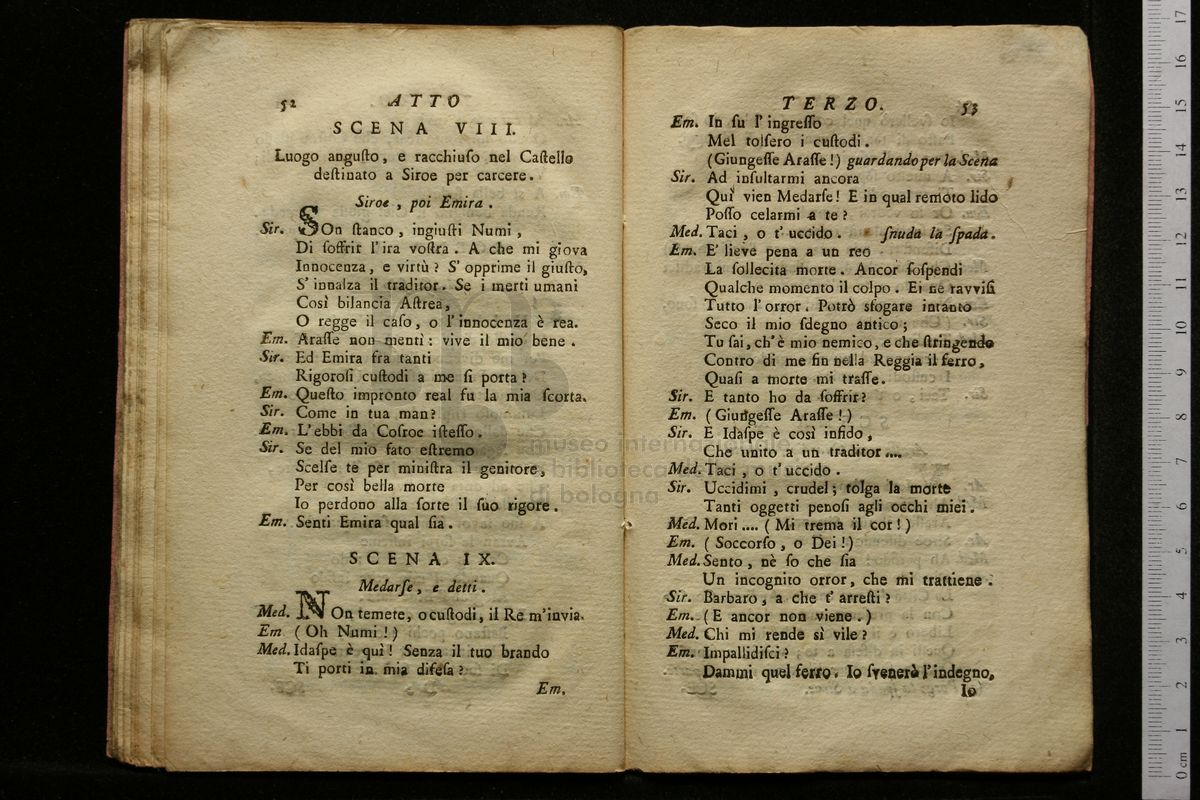 52 ATTO
SCENA VIII.
Luogo anguſto, e racchiuſo nel Caſtello
deſtinato a Siroe per carcere.
Siroe, poi Emira.
Sir. SOn ſtanco, ingiuſti Numi,
Di ſoffrir l'ira voſtra. A che mi giova
Innocenza, e virtù? S'opprime il giuſto,
S'innalza il traditor. Se i merti umani
Così bilancia Aſtrea,
O regge il caſo, o l'innocenza è rea.
Em. Araſſe non mentì: vive il mio bene.
Sir. Ed Emira fra tanti
Rigoroſi cuſtodi a me ſi porta?
Em. Queſto impronto real fu la mia ſcorta.
Sir. Come in tua man?
Em. L'ebbi da Coſroe iſteſſo.
Sir. Se del mio fato eſtremo
Scelſe te per miniſtra il genitore,
Per così bella morte
Io perdono alla ſorte il ſuo rigore.
Em. Senti Emira qual ſia.
SCENA IX.
Medarſe, e detti.
Med. NOn temete, o cuſtodi, il Re m'invia.
Em (Oh Numi!)
Med. Idaſpe è quì! Senza il tuo brando
Ti porti in mia difeſa?
Em.
TERZO. 53
Em. In ſu l'ingreſſo
Mel tolſero i cuſtodi.
(Giungeſſe Araſſe!) guardando per la Scena
Sir. Ad inſultarmi ancora
Quì vien Medarſe! E in qual remoto lido
Poſſo celarmi a te?
Med. Taci, o t'uccido. ſnuda la ſpada.
Em. E' lieve pena a un reo
La ſollecita morte. Ancor ſoſpendi
Qualche momento il colpo. Ei ne ravviſi
Tutto l'orror. Potrò sfogare intanto
Seco il mio ſdegno antico;
Tu ſai, ch'è mio nemico, e che ſtringendo
Contro di me fin nella Reggia il ferro,
Quaſi a morte mi traſſe.
Sir. E tanto ho da ſoffrir?
Em. (Giungeſſe Araſſe!)
Sir. E Idaſpe è così infido,
Che unito a un traditor....
Med. Taci, o t'uccido.
Sir. Uccidimi, crudel; tolga la morte
Tanti oggetti penoſi agli occhi miei.
Med. Mori.... (Mi trema il cor!)
Em. (Soccorſo, o Dei!)
Med. Sento, nè ſo che ſia
Un incognito orror, che mi trattiene.
Sir. Barbaro, a che t'arreſti?
Em. (E ancor non viene.)
Med. Chi mi rende sì vile?
Em. Impallidiſci?
Dammi quel ferro. Io ſvenerò l'indegno,
Io
museo internazionale
biblioteca
di bologna
0 cm 1 2 3 4 5 6 7 8 9 10 11 12 13 14 15 16 17